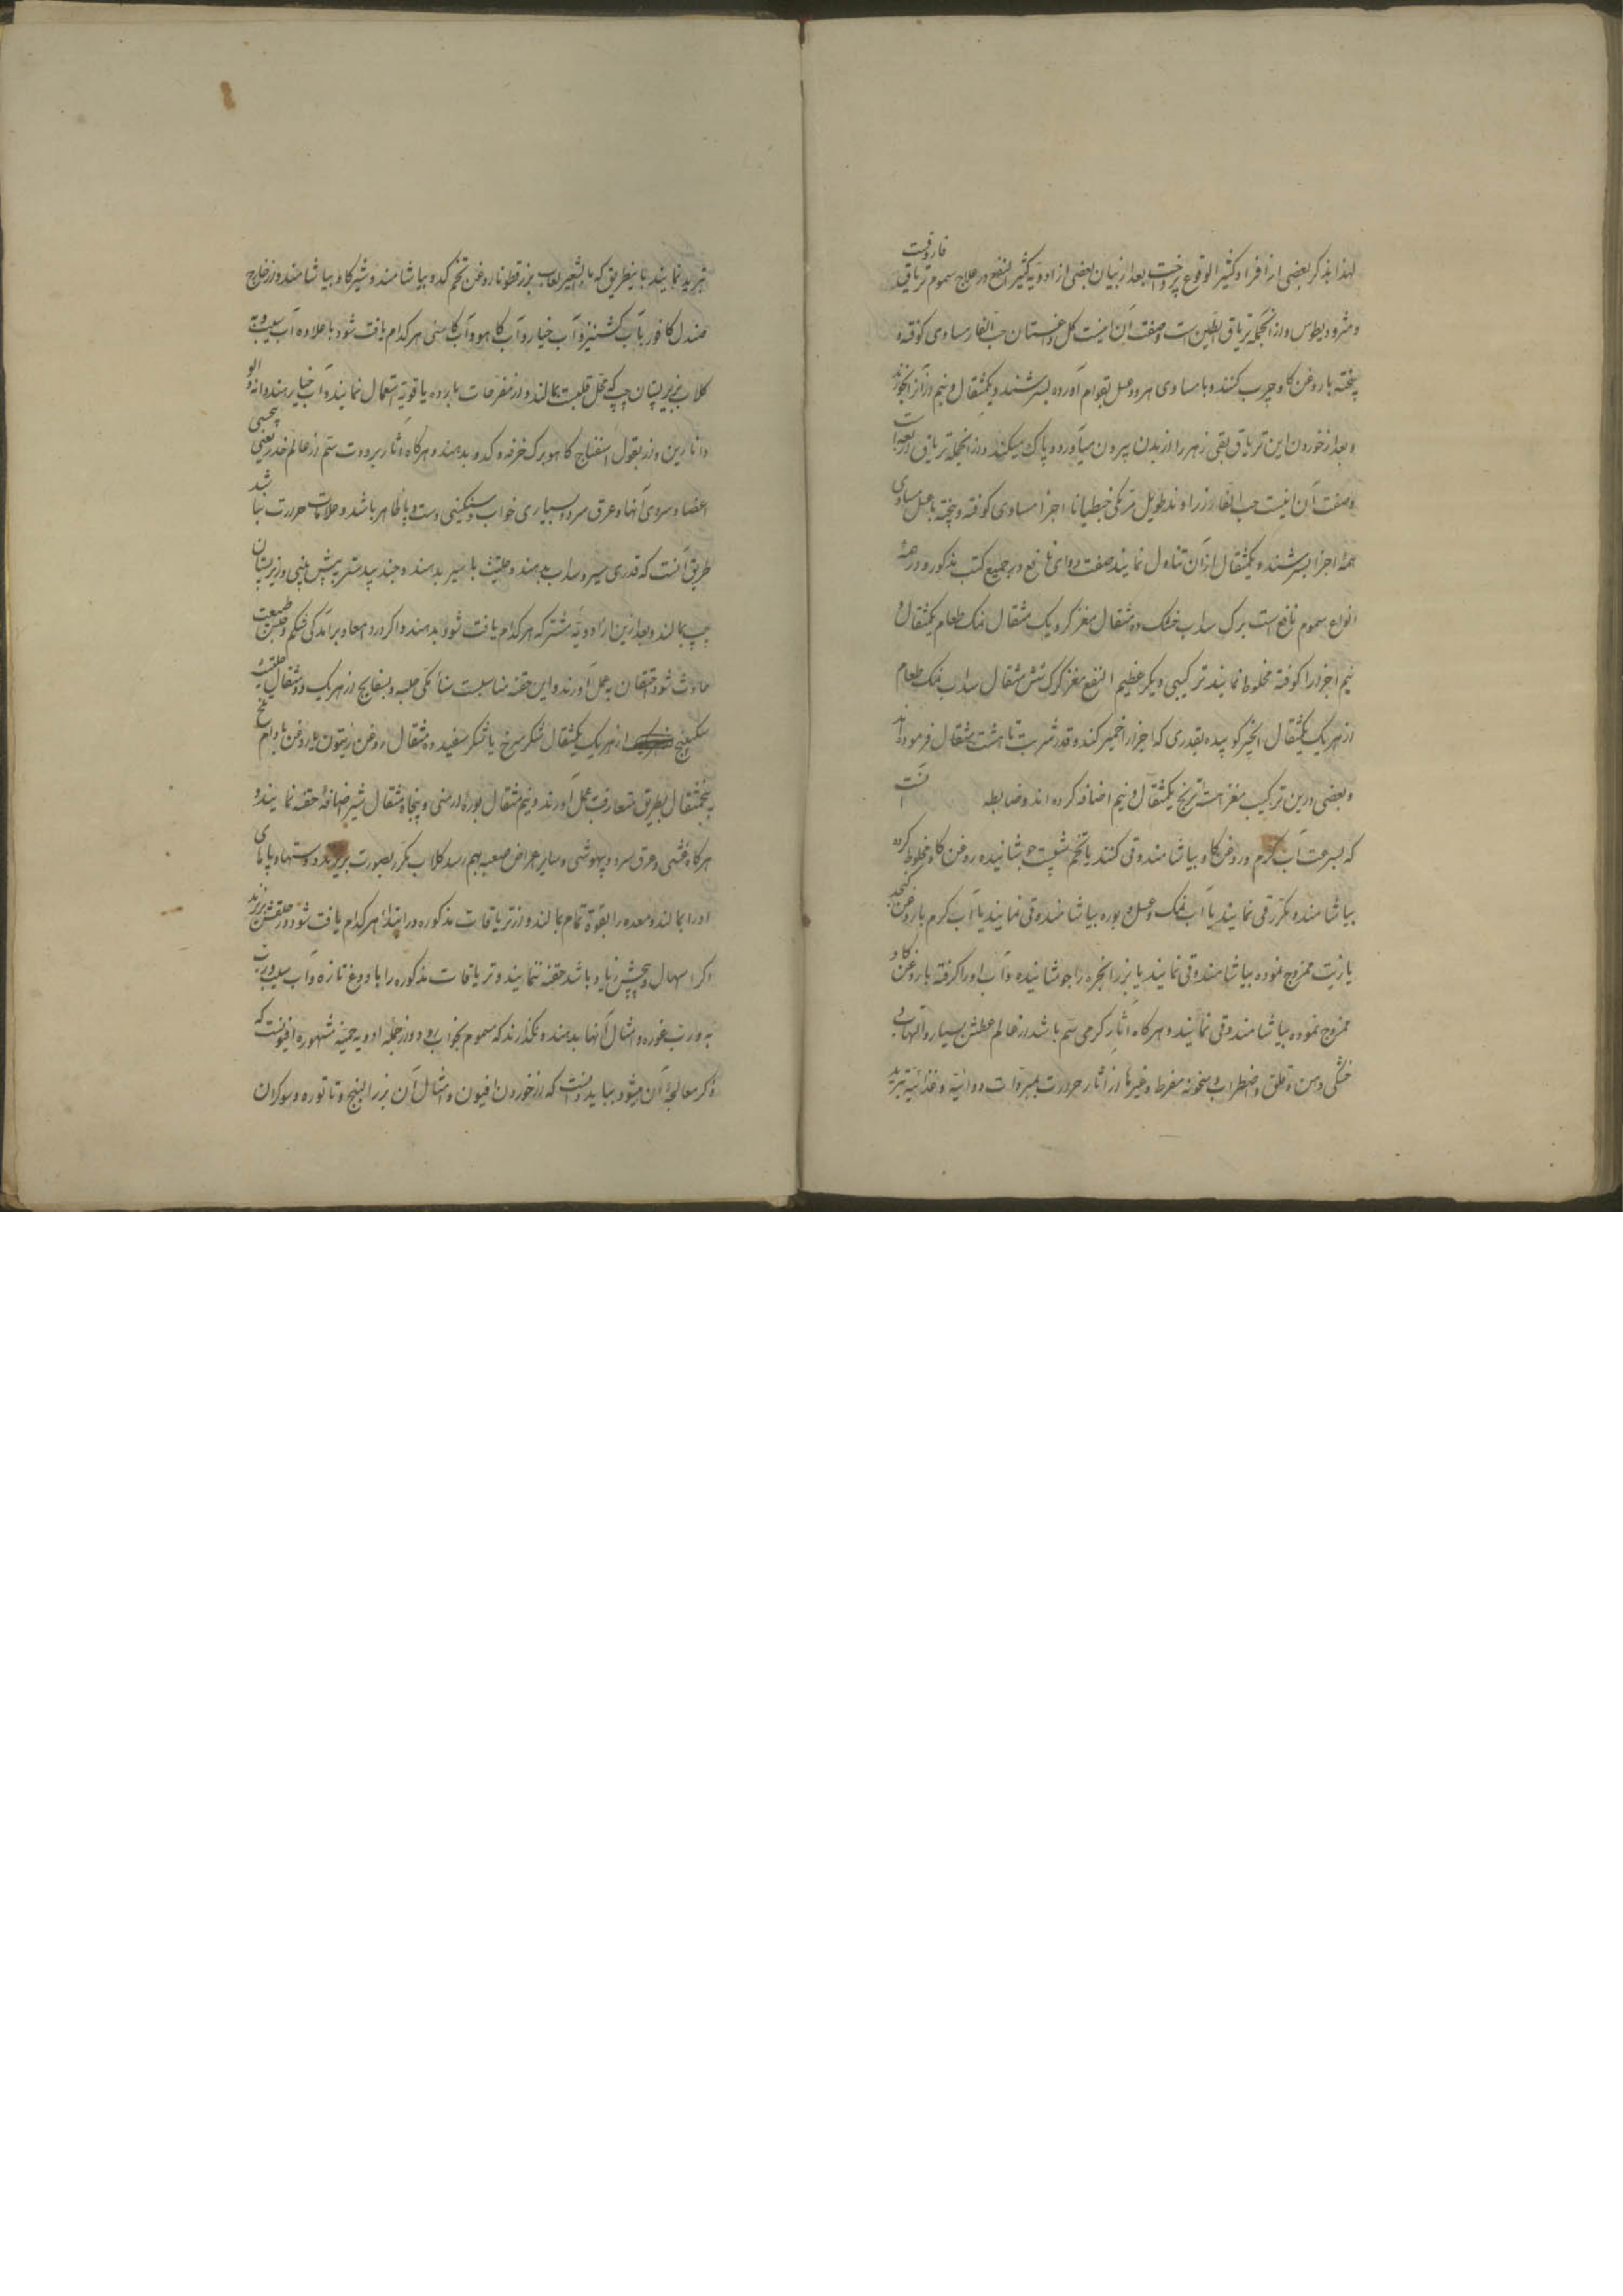 لهذا بذکر بعضی از افراد کثیر الوقوع پرداخت بعد از بیان بعضی از ادویه کثیر النفع در علاج سموم تریاق فاروقست
و مثرودیطوس و از انجمله تریاق الطین است و صفت آن اینست کل داغستان حب الغار مساوی کوفته و
پخته با روغن کاو چرب کنند و با مساوی هر دو عسل بقوام آورده بسرشند و یکمثقال و نیم از آن بخورند
و بعد از خوردن این تریاق بقی زهر را از بدن بیرون میآورد و پاک میکند و از انجمله تریاق اربعه است
و صفت آن اینست حب الغار زراوند طویل مر مکی جنطیانا اجزا مساوی کوفته و پخته با عسل مساوی
همهٔ اجزا بسرشند و یکمثقال از آن تناول نمایند صفت دوای نافع در جمیع کتب مذکور و در همهٔ
انواع سموم نافع است برک سداب خشک ده مثقال مغز کردو یک مثقال نمک طعام یکمثقال و
نیم اجزا را کوفته مخلوط نمایند ترکیبی دیکر عظیم النفع مغز کردو شش مثقال سداب نمک طعام
از هر یک یکمثقال انجیر کوبیده بقدری که اجزا را خمیر کند و قدر شربت تا هشت مثقال فرموده‌اند
و بعضی درین ترکیب مغز هسته ترنج یکمثقال و نیم اضافه کرده اند و ضابطه
که بسرعت آب کرم و روغن کاو بیاشامند و قی کنند یا تخم شبت جوشانیده روغن کاو مخلوط کرده
بیاشامند و مکرر قی نمایند یا آب نمک و عسل و بوره بیاشامند و قی نمایند یا آب کرم با روغن کنجد
یا زیت ممزوج نموده بیاشامند و قی نمایند یا بزر انجره را جوشانیده و آب او را کرفته با روغن کاو
ممزوج نموده بیاشامند و قی نمایند و هر کاه آثار کرمی سم باشد از عالم عطش بسیار و التهاب
خشکی دهن و قلق و اضطراب و سخونة مفرط و غیرها از آثار حرارت بمبردات دوائیه و غذائیه تبرید
تبرید نمایند باینطریق که ماء الشعیر لعاب بزرقطونا روغن تخم کدو بیاشامند و شیر کاو بیاشامند و از خارج
صندل کافور بآب کشنیز و آب خیار و آب کاهو و آب کاسنی هر کدام یافت شود با علاوه آب سیب و به
کلاب بزیر پستان چپ که محل قلبست بمالند و از مفرحات بارده یاقوتیه استعمال نمایند و آب خیار هندوانه و الو
و انارین و از بقول اسفناج کاهو برک خرفه و کدو بدهند و هر کاه آثار برودت سم از عالم خدر یعنی بیحسی
اعضا و سردی آنها و عرق سرد و بسیاری خواب و سنکینی دست و پا ظاهر باشد و علامات حرارت نباشد
طریق آنست که قدری سیر و سداب بدهند و حلتیت با سیر بدهند و جندبیدستر به پیش بینی و زیر پستان
چپ بمالند و بعد ازین از ادویه مشترکه هر کدام یافت شود بدهند و اکر درد امعا و برآمدکی شکم و حبس طبیعت
حادث شود احتقان بعمل آورند و این حقنه مناسبست سناء مکی حلبه و بسفایج از هر یک دو مثقال حلتیت
سکبینج از هر یک یکمثقال شکر سرخ یا شکر سفید ده مثقال روغن زیتون یا روغن بادام تلخ
پنجمثقال بطریق متعارف بعمل آورند و نیم مثقال بوره ارمنی و پنجاه مثقال شیر اضافه حقنه نمایند و
هر کاه غشی و عرق سرد و بیهوشی و سایر اعراض صعبه بهم رسد کلاب مکرر بصورت بریزند و دستها و پاهای
او را بمالند و معده را بقوة تمام بمالند و از تریاقات مذکوره در ابتدا هر کدام یافت شود در حلقش بریزند
اکر اسهال و پیچش زیاد باشد حقنه ننمایند و تریاقات مذکوره را با دوغ تازه و آب سیب و رب
به و رب غوره و امثال آنها بدهند و نکذارند که مسموم بخواب رود و از جمله ادویه سمیه مشهوره افیونست که
ذکر معالجهٔ آن میشود بباید دانست که از خوردن افیون و امثال آن بزر البنج و تاتوره و شوکران